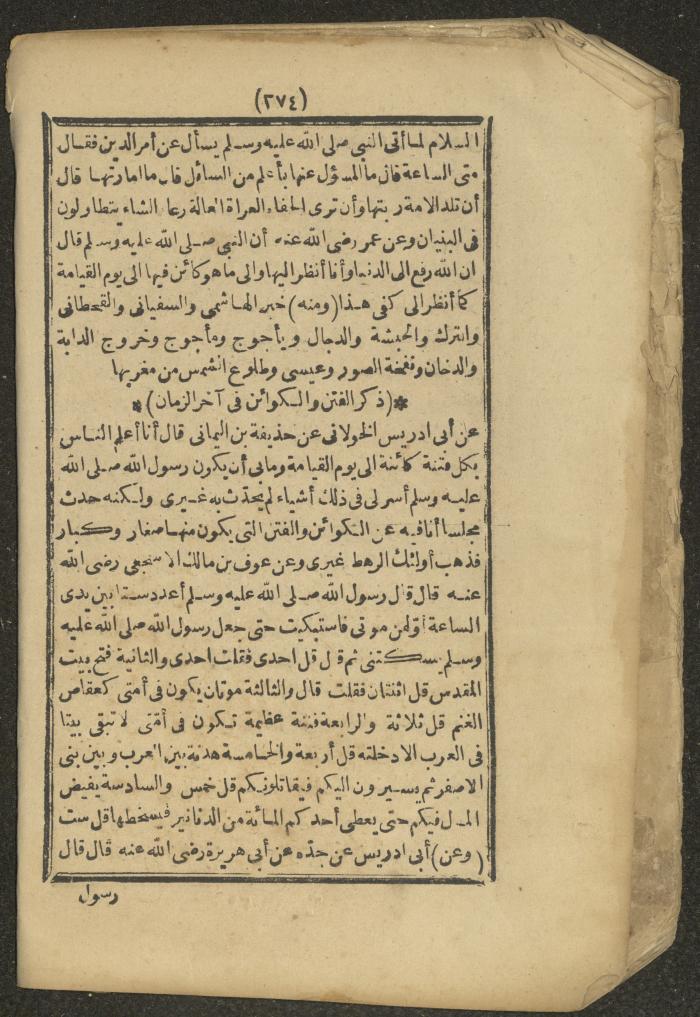 (٢٧٤)
السلام لما أتى النبى صلى الله عليه وسلم يسأل عن أمر الدين فقال
متى الساعة قال ما المسؤل عنها بأعلم من السائل قال ما امارتها قال
أن تلد الامة ربتها وأن ترى الحفاء العراة العالة رعا الشاء يتطاولون
فى البنيان وعن عمر رضى الله عنه أن النبى صلى الله عليه وسلم قال
ان الله رفع الى الدنيا وأنا أنظر اليها والى ما هو كائن فيها الى يوم القيامة
كما أنظر الى كفى هذا (ومنه) خبر الهاشمى والسفيانى والقحطانى
والترك والحبشة والدجال ويأجوج ومأجوج وخروج الدابة
والدخان ونفخة الصور وعيسى وطلوع الشمس من مغربها
*(ذكر الفتن والكوائن فى آخر الزمان)*
عن أبى ادريس الخولانى عن حذيفة بن اليمانى قال أنا أعلم الناس
بكل فتنة كائنة الى يوم القيامة وما بى أن يكون رسول الله صلى الله
عليه وسلم أسر لى فى ذلك أشياء لم يحدث به غيرى ولكنه حدث
مجلسا أنا فيه عن الكوائن والفتن التى يكون منها صغار وكبار
فذهب أولئك الرهط غيرى وعن عوف بن مالك الاشجعى رضى الله
عنه قال قال رسول الله صلى الله عليه وسلم أعدد ستا بين يدى
الساعة أولهن موتى فاستبكيت حتى جعل رسول الله صلى الله عليه
وسلم يسكتنى ثم قال قل احدى فقلت احدى والثانية فتح بيت
المقدس قل اثنتان فقلت قال والثالثة موتان يكون فى أمتى كعقاص
الغنم قل ثلاثة والرابعة فتنة عظيمة تكون فى أمتى لا تبقى بيتا
فى العرب الا دخلته قل أربعة والخامسة هدنة بين العرب وبين بنى
الاصفر ثم يسيرون اليكم فيقاتلونكم قل خمس والسادسة يفيض
المال فيكم حتى يعطى أحدكم المائة من الدنانير فيسخطها قل ست
(وعن) أبى ادريس عن جده عن أبى هريرة رضى الله عنه قال قال
رسول